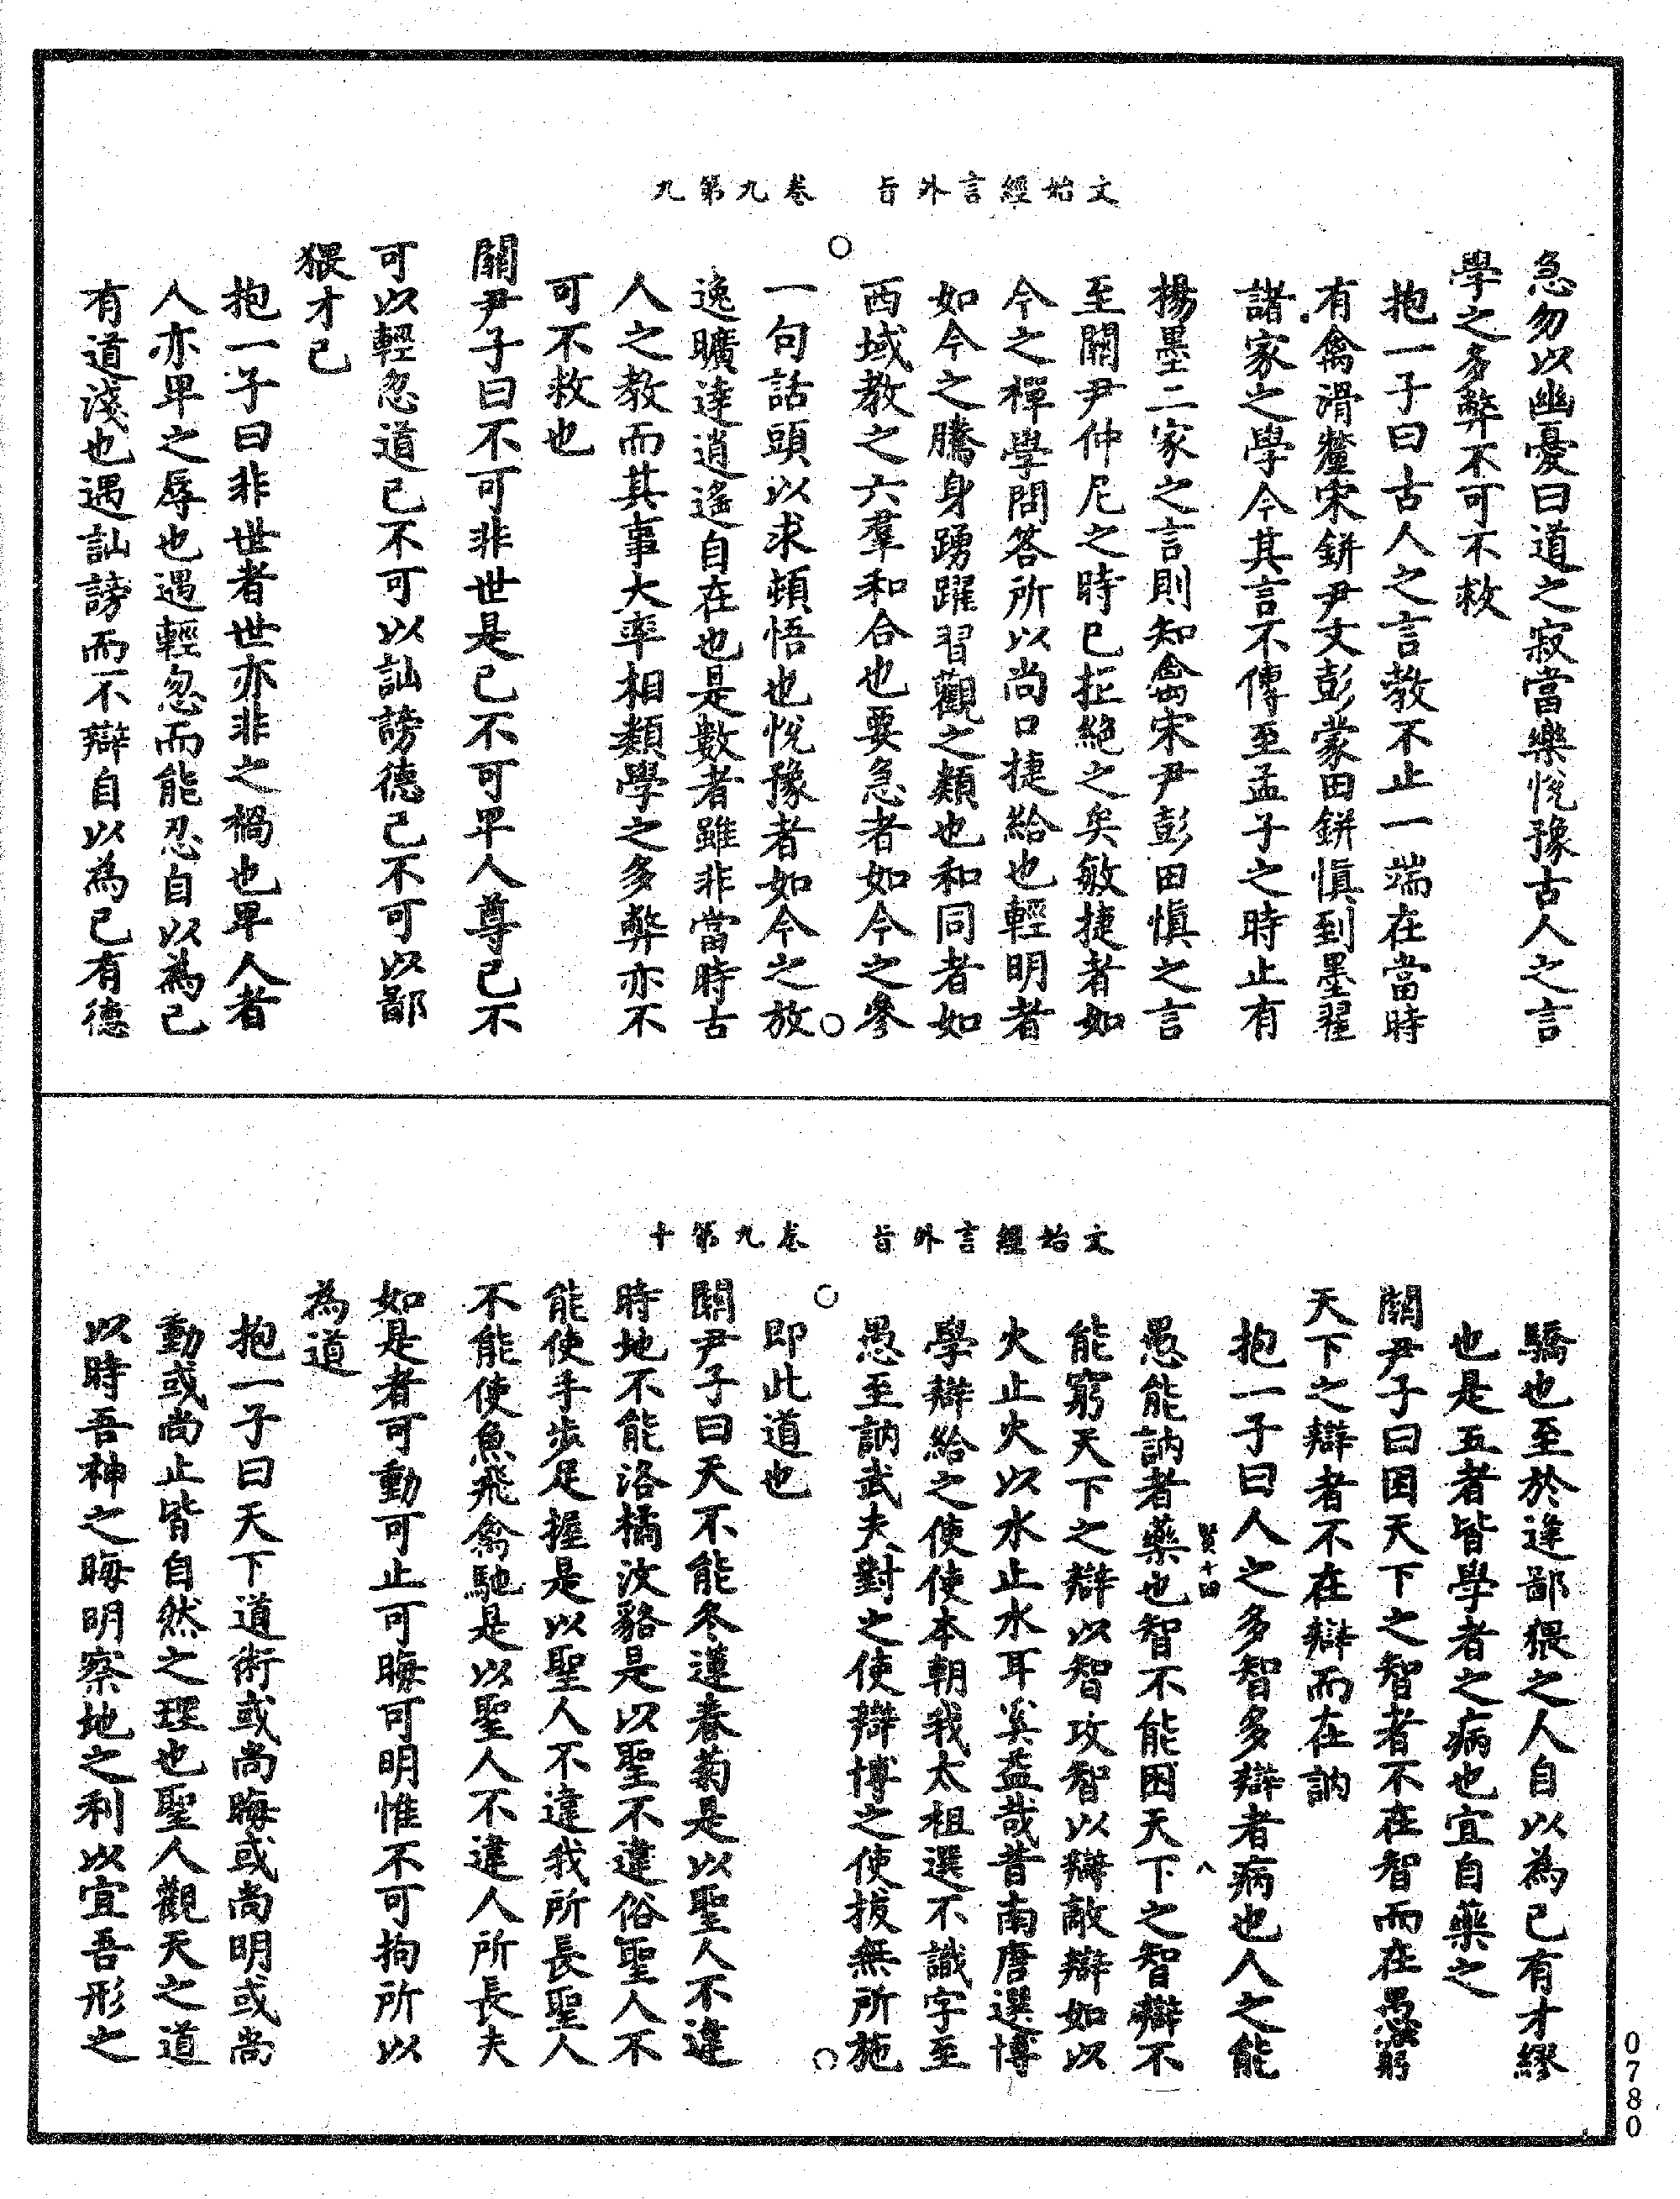 文始經言外旨　卷九第九
急勿以幽憂曰道之寂當樂悅豫古人之言
學之多弊不可不救
抱一子曰古人之言教不止一端在當時
有禽滑釐宋鈃尹文彭蒙田鈃慎到墨翟
諸家之學今其言不傳至孟子之時止有
楊墨二家之言則知禽宋尹彭田慎之言
至關尹仲尼之時已拒絕之矣敏捷者如
今之禪學問答所以尚口捷給也輕明者
如今之騰身踴躍習觀之類也和同者如
西域教之六羣和合也要急者如今之參
一句話頭以求頓悟也悅豫者如今之放
逸曠達逍遙自在也是數者雖非當時古
人之教而其事大率相類學之多弊亦不
可不救也
關尹子曰不可非世是己不可卑人尊己不
可以輕忽道己不可以訕謗德己不可以鄙
猥才己
抱一子曰非世者世亦非之禍也卑人者
人亦卑之辱也遇輕忽而能忍自以為己
有道淺也遇訕謗而不辯自以為己有德
文始經言外旨　卷九第十
驕也至於逢鄙猥之人自以為己有才繆
也是五者皆學者之病也宜自藥之
關尹子曰困天下之智者不在智而在愚窮
天下之辯者不在辯而在訥
抱一子曰人之多智多辯者病也人之能
賢十四　八
愚能訥者藥也智不能困天下之智辯不
能窮天下之辯以智攻智以辯敵辯如以
火止火以水止水耳奚益哉昔南唐選博
學辯給之使使本朝我太祖選不識字至
愚至訥武夫對之使辯博之使拔無所施
即此道也
關尹子曰天不能冬蓮春菊是以聖人不違
時地不能洛橘汶貉是以聖不違俗聖人不
能使手步足握是以聖人不違我所長聖人
不能使魚飛禽馳是以聖人不違人所長夫
如是者可動可止可晦可明惟不可拘所以
為道
抱一子曰天下道術或尚晦或尚明或尚
動或尚止皆自然之理也聖人觀天之道
以時吾神之晦明察地之利以宜吾形之
0780